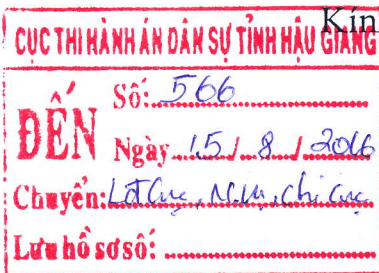 Kín
CỤC THI HÀNH ÁN DÂN SỰ TỈNH HẬU GIANG
ĐẾN
Số: 566
Ngày 15 / 8 / 2016
Chuyển: Lđ Cục, N.Vụ, Chi cục
Lưu hồ sơ số: